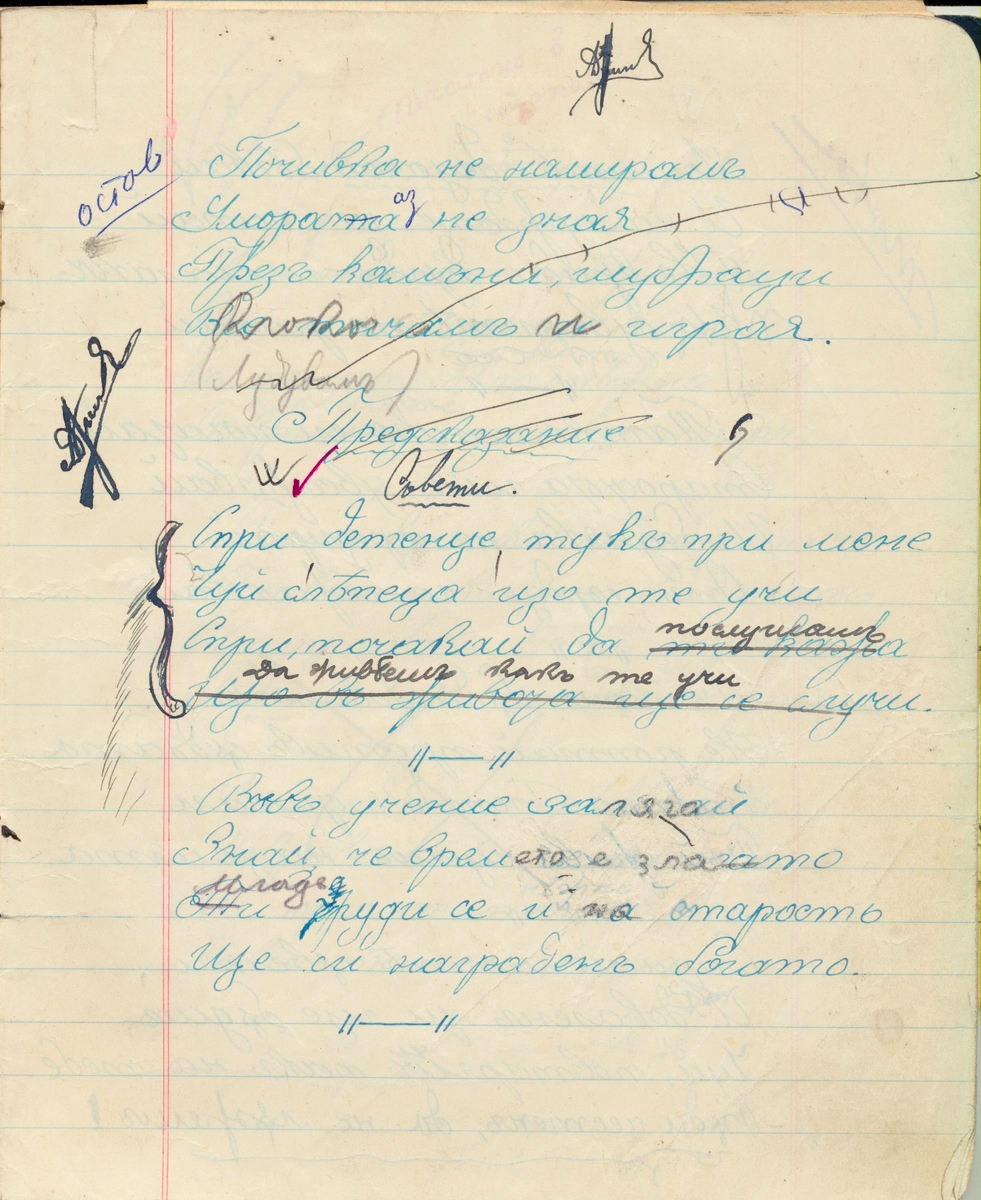 остав
Почивка не намирамъ
Умората аз не зная
Презъ камъни, шубраци
тичамъ и играя.
(Лудувамъ)
Предсказание
Съвети.
Спри детенце, тукъ при мене
Чуй слѣпеца що те учи
Спри, почакай да послушашъ
да живѣешъ какъ те учи
Що въ живота ще се случи.
Вовъ учение залягай
Знай, че времето е злато
Младъ
Ти труди се и на старость
Ще си награденъ богато.